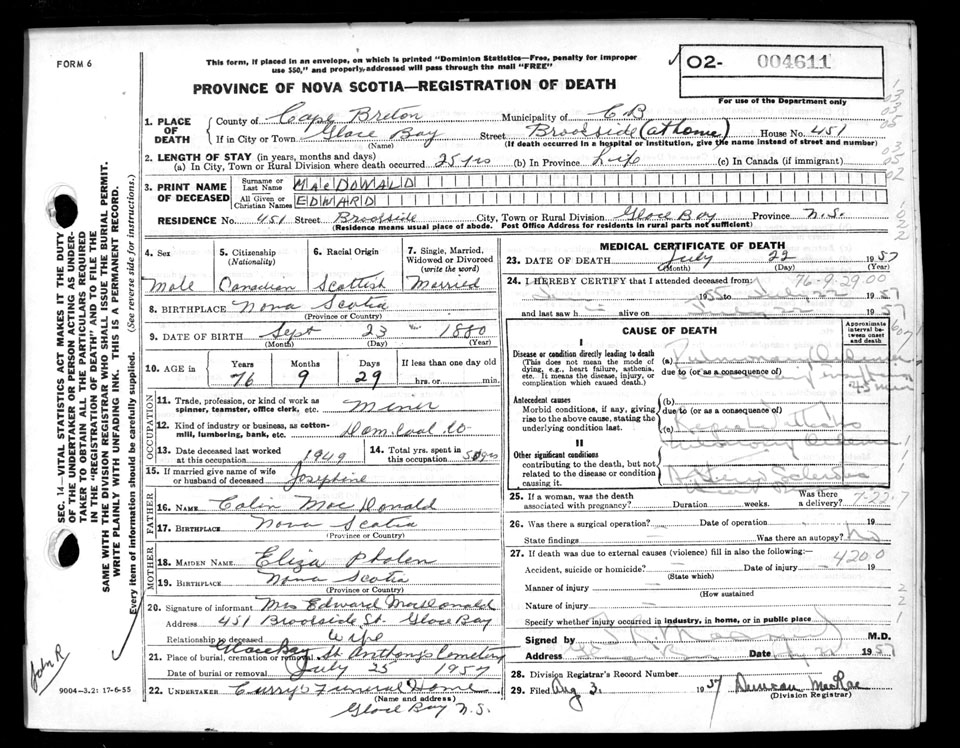 FORM 6
This form, if placed in an envelope, on which is printed "Dominion Statistics—Free, penalty for improper
use $50," and properly addressed will pass through the mail "FREE"
O2- 004611
For use of the Department only
PROVINCE OF NOVA SCOTIA—REGISTRATION OF DEATH
1. PLACE OF DEATH
County of Cape Breton Municipality of C B
If in City or Town Glace Bay Street Brookside (at home) House No. 451
(Name) (If death occurred in a hospital or institution, give the name instead of street and number)
2. LENGTH OF STAY (in years, months and days)
(a) In City, Town or Rural Division where death occurred 25 yrs (b) In Province Life (c) In Canada (if immigrant)
3. PRINT NAME OF DECEASED
Surname or Last Name MacDONALD
All Given or Christian Names EDWARD
RESIDENCE No. 451 Street Brookside City, Town or Rural Division Glace Bay Province N.S.
(Residence means usual place of abode. Post Office Address for residents in rural parts not sufficient)
4. Sex
Male
5. Citizenship (Nationality)
Canadian
6. Racial Origin
Scottish
7. Single, Married, Widowed or Divorced (write the word)
Married
8. BIRTHPLACE Nova Scotia
(Province or Country)
9. DATE OF BIRTH Sept 23 1880
(Month) (Day) (Year)
10. AGE in
Years Months Days If less than one day old
76 9 29 hrs. or min.
OCCUPATION
11. Trade, profession, or kind of work as
spinner, teamster, office clerk, etc. Miner
12. Kind of industry or business, as cotton-
mill, lumbering, bank, etc. Dom. Coal Co
13. Date deceased last worked at this occupation 1949
14. Total yrs. spent in this occupation 50 yrs
15. If married give name of wife or husband of deceased Josephine
FATHER
16. NAME Colin MacDonald
17. BIRTHPLACE Nova Scotia
(Province or Country)
MOTHER
18. MAIDEN NAME Eliza Phalen
19. BIRTHPLACE Nova Scotia
(Province or Country)
20. Signature of informant Mrs Edward MacDonald
Address 451 Brookside St. Glace Bay
Relationship to deceased Wife
21. Place of burial, cremation or removal Glace Bay St Anthonys Cemetery
Date of burial or removal July 25 1957
22. UNDERTAKER Curry's Funeral Home
(Name and address)
Glace Bay N.S.
MEDICAL CERTIFICATE OF DEATH
23. DATE OF DEATH July 22 1957
(Month) (Day) (Year)
24. I HEREBY CERTIFY that I attended deceased from:
76-9-29.00
to July 22 1957
and last saw alive on July 22 1957
CAUSE OF DEATH
Approximate interval between onset and death
I
Disease or condition directly leading to death
(This does not mean the mode of dying, e.g., heart failure, asthenia, etc. It means the disease, injury, or complication which caused death.)
(a) Pulmonary
due to (or as a consequence of)
45 min
Antecedent causes
Morbid conditions, if any, giving rise to the above cause, stating the underlying condition last.
(b)
due to (or as a consequence of)
(c)
II
Other significant conditions
contributing to the death, but not related to the disease or condition causing it.
25. If a woman, was the death associated with pregnancy? Duration weeks. Was there a delivery?
7-22-7
26. Was there a surgical operation? Date of operation 19
State findings Was there an autopsy? No
27. If death was due to external causes (violence) fill in also the following:—
4200
Accident, suicide or homicide? Date of injury 19
(State which)
Manner of injury
(How sustained
Nature of injury
Specify whether injury occurred in industry, in home, or in public place
Signed by M.D.
Address Date July 22 1957
28. Division Registrar's Record Number
29. Filed Aug 2. 1957 Duncan MacRae
(Division Registrar)
SEC. 14—VITAL STATISTICS ACT MAKES IT THE DUTY
OF THE UNDERTAKER OR PERSON ACTING AS UNDER-
TAKER TO OBTAIN ALL THE PARTICULARS REQUIRED
IN THE "REGISTRATION OF DEATH" AND TO FILE THE
SAME WITH THE DIVISION REGISTRAR WHO SHALL ISSUE THE BURIAL PERMIT.
WRITE PLAINLY WITH UNFADING INK. THIS IS A PERMANENT RECORD.
Every item of information should be carefully supplied. (See reverse side for instructions.)
John R
9004-3.2: 17-6-55